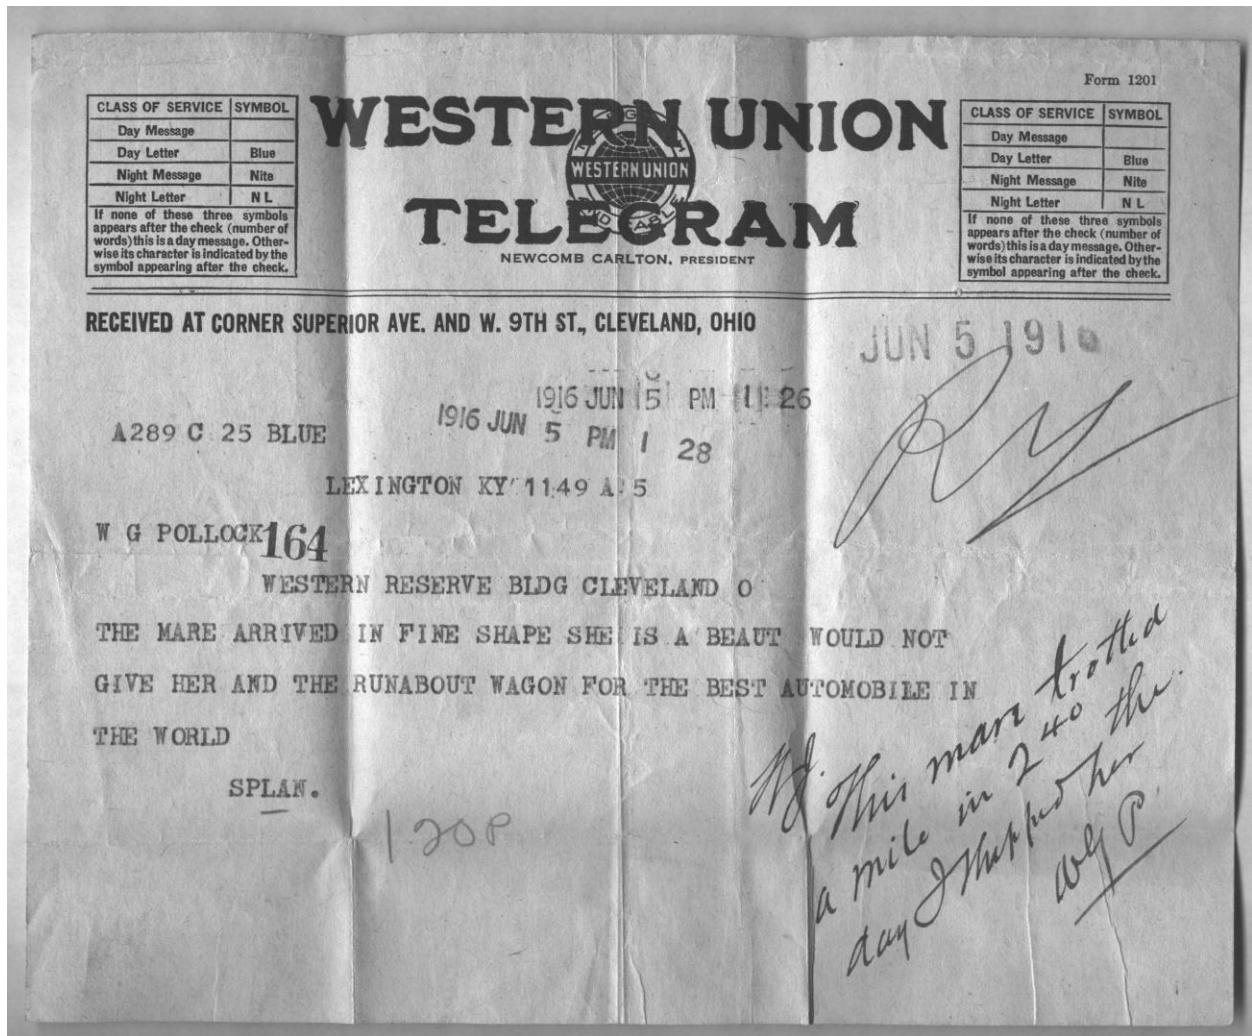 Form 1201
CLASS OF SERVICE SYMBOL
Day Message
Day Letter Blue
Night Message Nite
Night Letter N L
If none of these three symbols
appears after the check (number of
words) this is a day message. Other-
wise its character is indicated by the
symbol appearing after the check.
WESTERN UNION
WESTERN UNION
TELEGRAM
NEWCOMB CARLTON, PRESIDENT
CLASS OF SERVICE SYMBOL
Day Message
Day Letter Blue
Night Message Nite
Night Letter N L
If none of these three symbols
appears after the check (number of
words) this is a day message. Other-
wise its character is indicated by the
symbol appearing after the check.
RECEIVED AT CORNER SUPERIOR AVE. AND W. 9TH ST., CLEVELAND, OHIO
JUN 5 1916
1916 JUN 5 PM 1: 26
1916 JUN 5 PM 1 28
A289 C 25 BLUE
LEXINGTON KY 1149 A 5
W G POLLOCK 164
WESTERN RESERVE BLDG CLEVELAND O
THE MARE ARRIVED IN FINE SHAPE SHE IS A BEAUT WOULD NOT
GIVE HER AND THE RUNABOUT WAGON FOR THE BEST AUTOMOBILE IN
THE WORLD
SPLAN.
120P
This mare trotted
a mile in 2 40 the
day I shipped her
WG P.